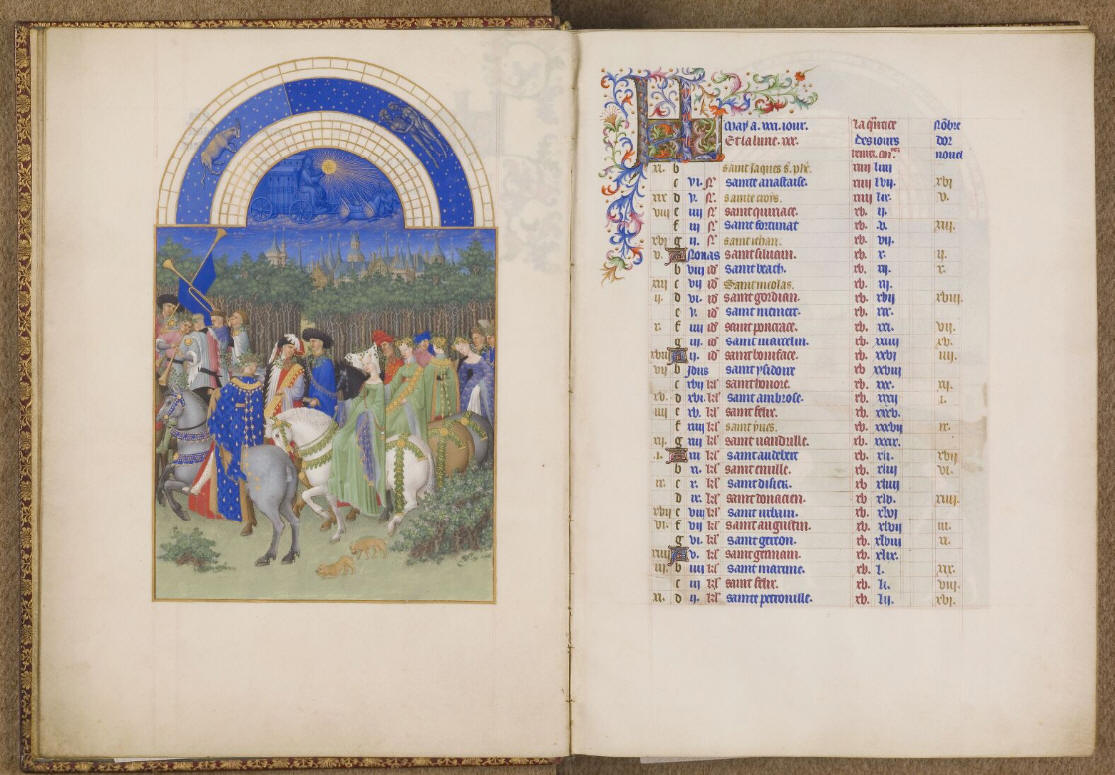 May a. xxxi. iour. la qũtite nõbre
Et la lune. xxx. des iours dor
nouel
xi. b saint iaques s. phẽ. xiiii liiii
c vi. nͤ sainte anastaise. xiiii lvii. xvi
xix d v. nͤ sainte crois. xiiii lix v.
viii e iiii nͤ saint quiriace. xv. ij.
f iii nͤ saint fortunat xv. v. xiii.
xvi g ii. nͤ saint iehan. xv. vii.
v. A Nonas saint siluain. xv. x. ij.
b viii id saint beach. xv. xij. x.
xiii c vii id Saint nicolas. xv. xv.
ij. d vi. id saint gordian. xv. xvij xviii.
e v. id saint mamert. xv. xix.
x. f iiii id saint poncrace. xv. xxi. vii.
g iii. id saint marcelin. xv. xxiiii xv.
xviii A ij. id saint boniface. xv. xxvi iiii.
vij b Idus saint ysidoire xv. xxviii
c xvij kl saint honore. xv. xxx. xij.
xv. d xvi. kl saint ambroise. xv. xxxij i.
iiii e xv. kl saint felix. xv. xxxv.
f xiiii kl saint yues. xv. xxxvii ix.
xij. g xiii kl saint uandrille. xv. xxxix.
i. A xiii kl saint audebert xv. xli. xvij
b xi. kl saint emille. xv. xliii vi.
ix. c x. kl saint disier. xv. xliiii
d ix. kl saint donacien. xv. xlv. xiiii.
xvij e viii kl saint urbain. xv. xlvi
vi. f vij kl saint augustin. xv. xlvij iii.
g vi. kl saint geron. xv. xlviii xi.
xiiii A v. kl saint germain. xv. xlix.
iij. b iiii kl saint maxime. xv. l. xix.
c iij kl saint felix. xv. li. viii.
xi. d ij. kl sainte petronille. xv. lij. xvi.